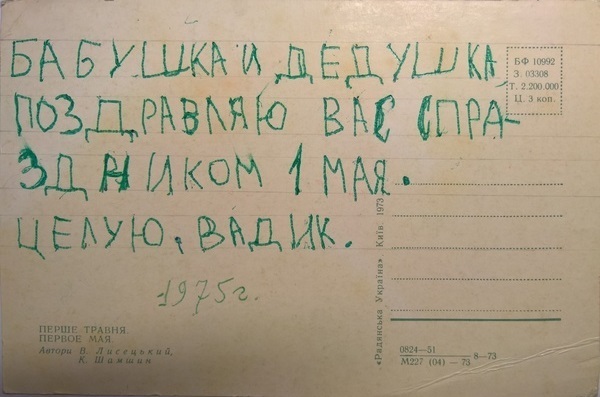 БАБУШКА И ДЕДУШКА
ПОЗДРАВЛЯЮ ВАС СПРА-
ЗДНИКОМ 1 МАЯ.
ЦЕЛУЮ, ВАДИК.
1975г.
БФ 10992
З. 03308
Т. 2.200.000
Ц. 3 коп.
ПЕРШЕ ТРАВНЯ.
ПЕРВОЕ МАЯ.
Автори В. Лисецький,
К. Шамшин
«Радянська Україна» Київ 1973
0824—51
М227 (04) — 73 8—73